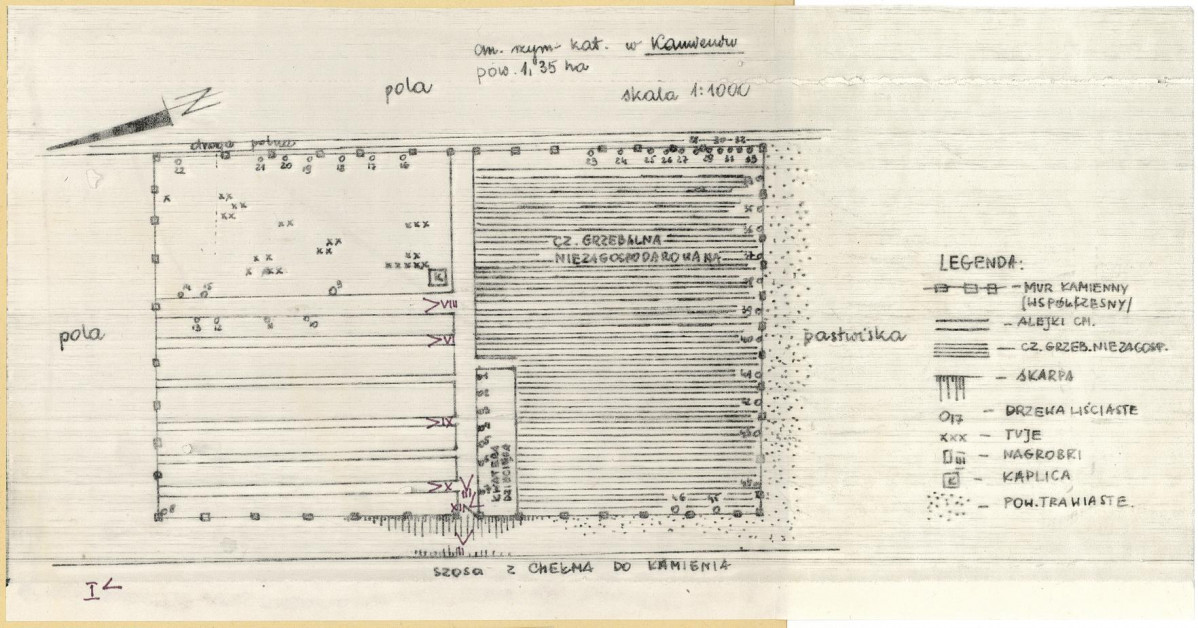 cm. rzym- kat. w Kamieniu
pow. 1,35 ha
pola
skala 1:1000
N
droga polna
22 21 20 19 18 17 16
23 24 25 26 27 29 31 33
28 - 30 - 32
CZ. GRZEBALNA
NIEZAGOSPODAROWANA
K
VIII
VI
IX
X
XII
III
II
I
pola
pastwiska
KWATERA
DZIECIĘCA
46 45
8
SZOSA Z CHEŁMA DO KAMIENIA
LEGENDA:
- MUR KAMIENNY
(WSPÓŁCZESNY/
- ALEJKI CM.
- CZ. GRZEB. NIEZAGOSP.
- SKARPA
17 - DRZEWA LIŚCIASTE
xxx - TUJE
- NAGROBKI
K - KAPLICA
- POW. TRAWIASTE.